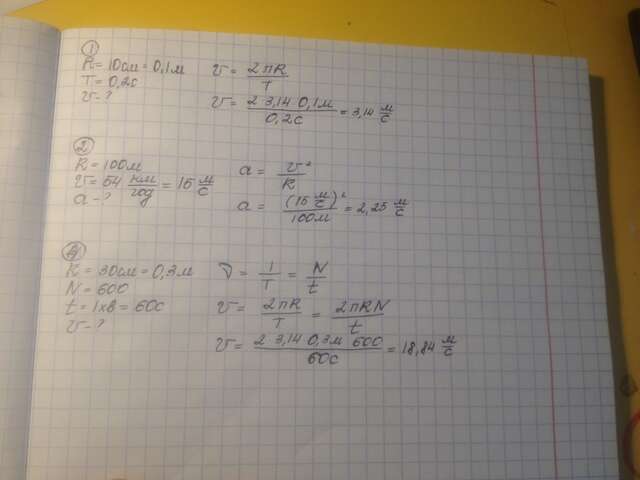 1
R = 10см = 0,1м
T = 0,2с
v - ?
v = 2πR / T
v = 2 3,14 0,1м / 0,2с = 3,14 м/с
2
R = 100м
v = 54 км/год = 15 м/с
a - ?
a = v² / R
a = (15 м/с)² / 100м = 2,25 м/с
4
R = 30см = 0,3м
N = 600
t = 1хв = 60с
v - ?
ν = 1/T = N/t
v = 2πR / T = 2πRN / t
v = 2 3,14 0,3м 600 / 60с = 18,84 м/с